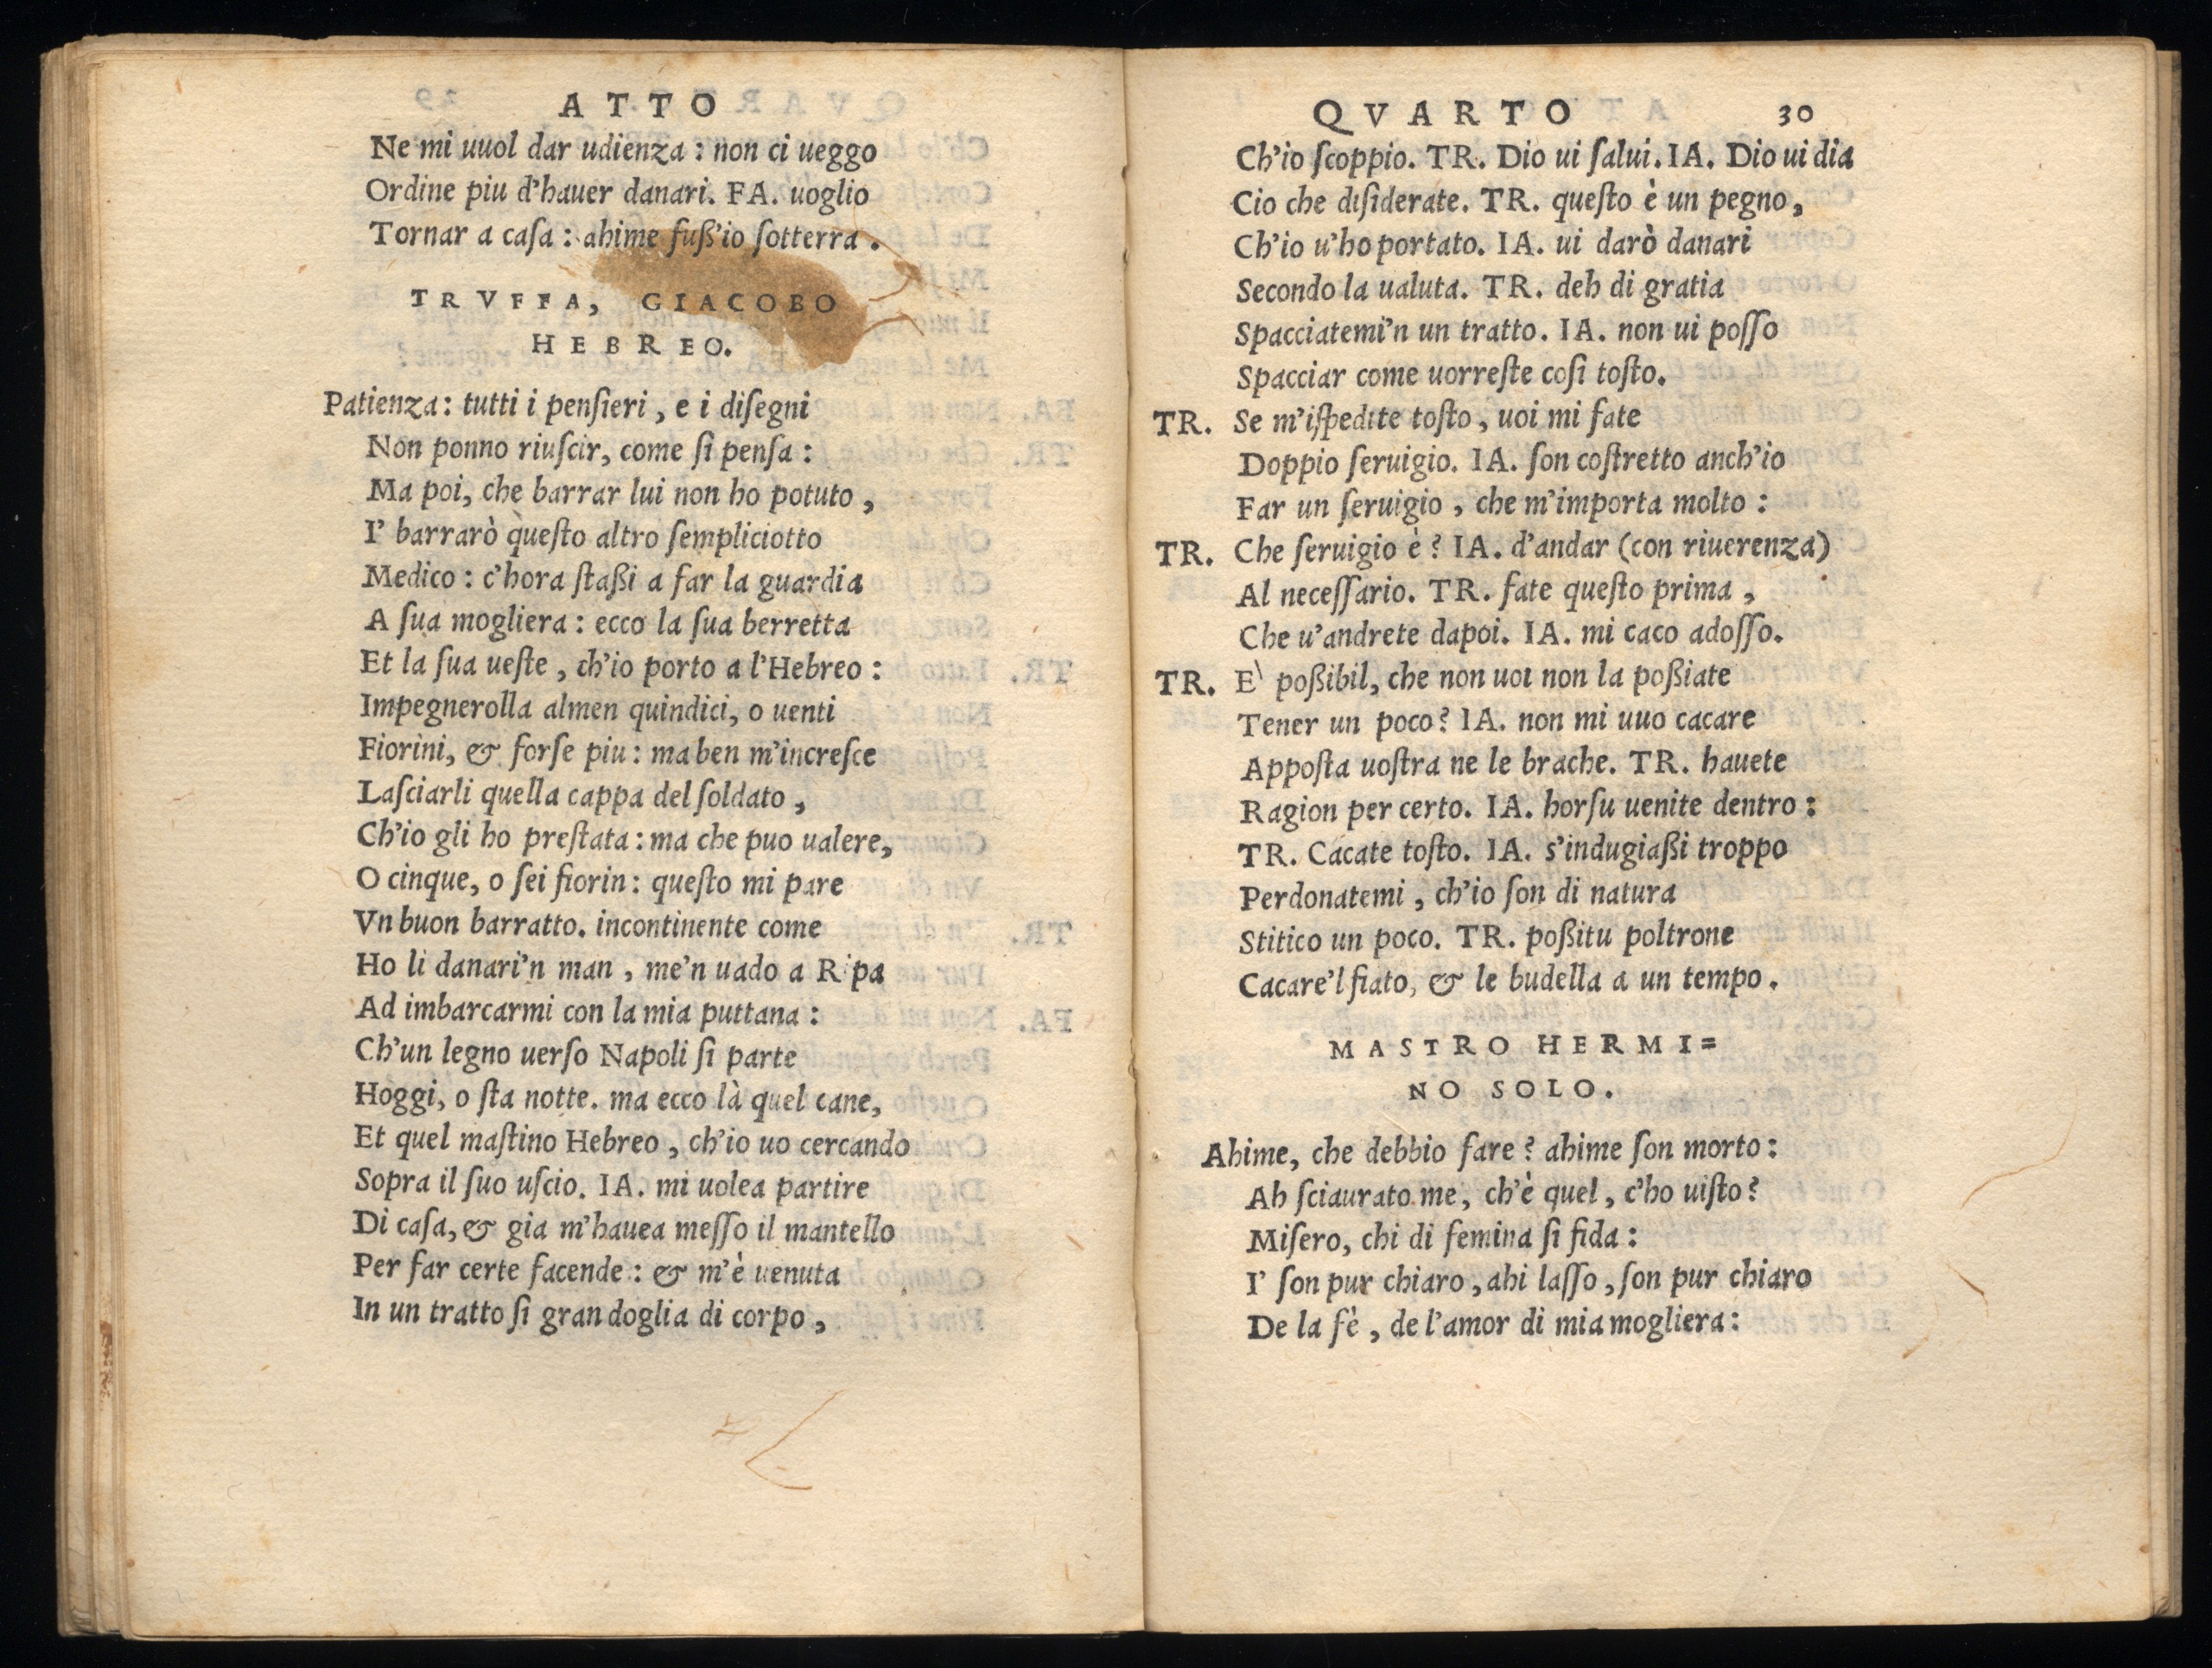 ATTO
Ne mi uuol dar udienza : non ci ueggo
Ordine piu d'hauer danari. FA. uoglio
Tornar a caſa : ahime fuß'io ſotterra .
TRVFFA, GIACOBO
HEBREO.
Patienza: tutti i penſieri , e i diſegni
Non ponno riuſcir, come ſi penſa :
Ma poi, che barrar lui non ho potuto ,
I' barrarò queſto altro ſempliciotto
Medico : c'hora ſtaßi a far la guardia
A ſua mogliera : ecco la ſua berretta
Et la ſua ueſte , ch'io porto a l'Hebreo :
Impegnerolla almen quindici, o uenti
Fiorini, & forſe piu : ma ben m'increſce
Laſciarli quella cappa del ſoldato ,
Ch'io gli ho preſtata : ma che puo ualere,
O cinque, o ſei fiorin : queſto mi pare
Vn buon barratto. incontinente come
Ho li danari'n man , me'n uado a Ripa
Ad imbarcarmi con la mia puttana :
Ch'un legno uerſo Napoli ſi parte
Hoggi, o ſta notte. ma ecco là quel cane,
Et quel maſtino Hebreo , ch'io uo cercando
Sopra il ſuo uſcio. IA. mi uolea partire
Di caſa, & gia m'hauea meſſo il mantello
Per far certe facende : & m'è uenuta
In un tratto ſi gran doglia di corpo ,
QVARTO 30
Ch'io ſcoppio. TR. Dio ui ſalui. IA. Dio ui dia
Cio che diſiderate. TR. queſto è un pegno ,
Ch'io u'ho portato. IA. ui darò danari
Secondo la ualuta. TR. deh di gratia
Spacciatemi'n un tratto. IA. non ui poſſo
Spacciar come uorreſte coſi toſto.
TR. Se m'iſpedite toſto , uoi mi fate
Doppio ſeruigio. IA. ſon coſtretto anch'io
Far un ſeruigio , che m'importa molto :
TR. Che ſeruigio è ? IA. d'andar (con riuerenza)
Al neceſſario. TR. fate queſto prima ,
Che u'andrete dapoi. IA. mi caco adoſſo.
TR. E' poßibil, che non uoi non la poßiate
Tener un poco ? IA. non mi uuo cacare
Appoſta uoſtra ne le brache. TR. hauete
Ragion per certo. IA. horſu uenite dentro :
TR. Cacate toſto. IA. s'indugiaßi troppo
Perdonatemi , ch'io ſon di natura
Stitico un poco. TR. poßitu poltrone
Cacare'l fiato, & le budella a un tempo .
MASTRO HERMI=
NO SOLO.
Ahime, che debbio fare ? ahime ſon morto :
Ah ſciaurato me, ch'è quel , c'ho uiſto ?
Miſero, chi di femina ſi fida :
I' ſon pur chiaro , ahi laſſo , ſon pur chiaro
De la fè , de l'amor di mia mogliera :